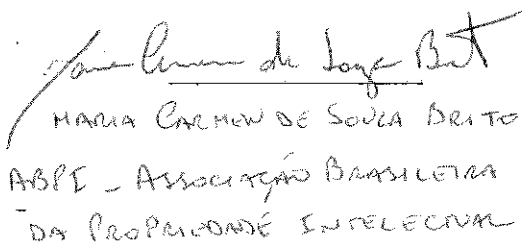 Maria Carmen de Souza Brito
MARIA CARMEN DE SOUZA BRITO
ABPI - ASSOCIAÇÃO BRASILEIRA
DA PROPRIEDADE INTELECTUAL